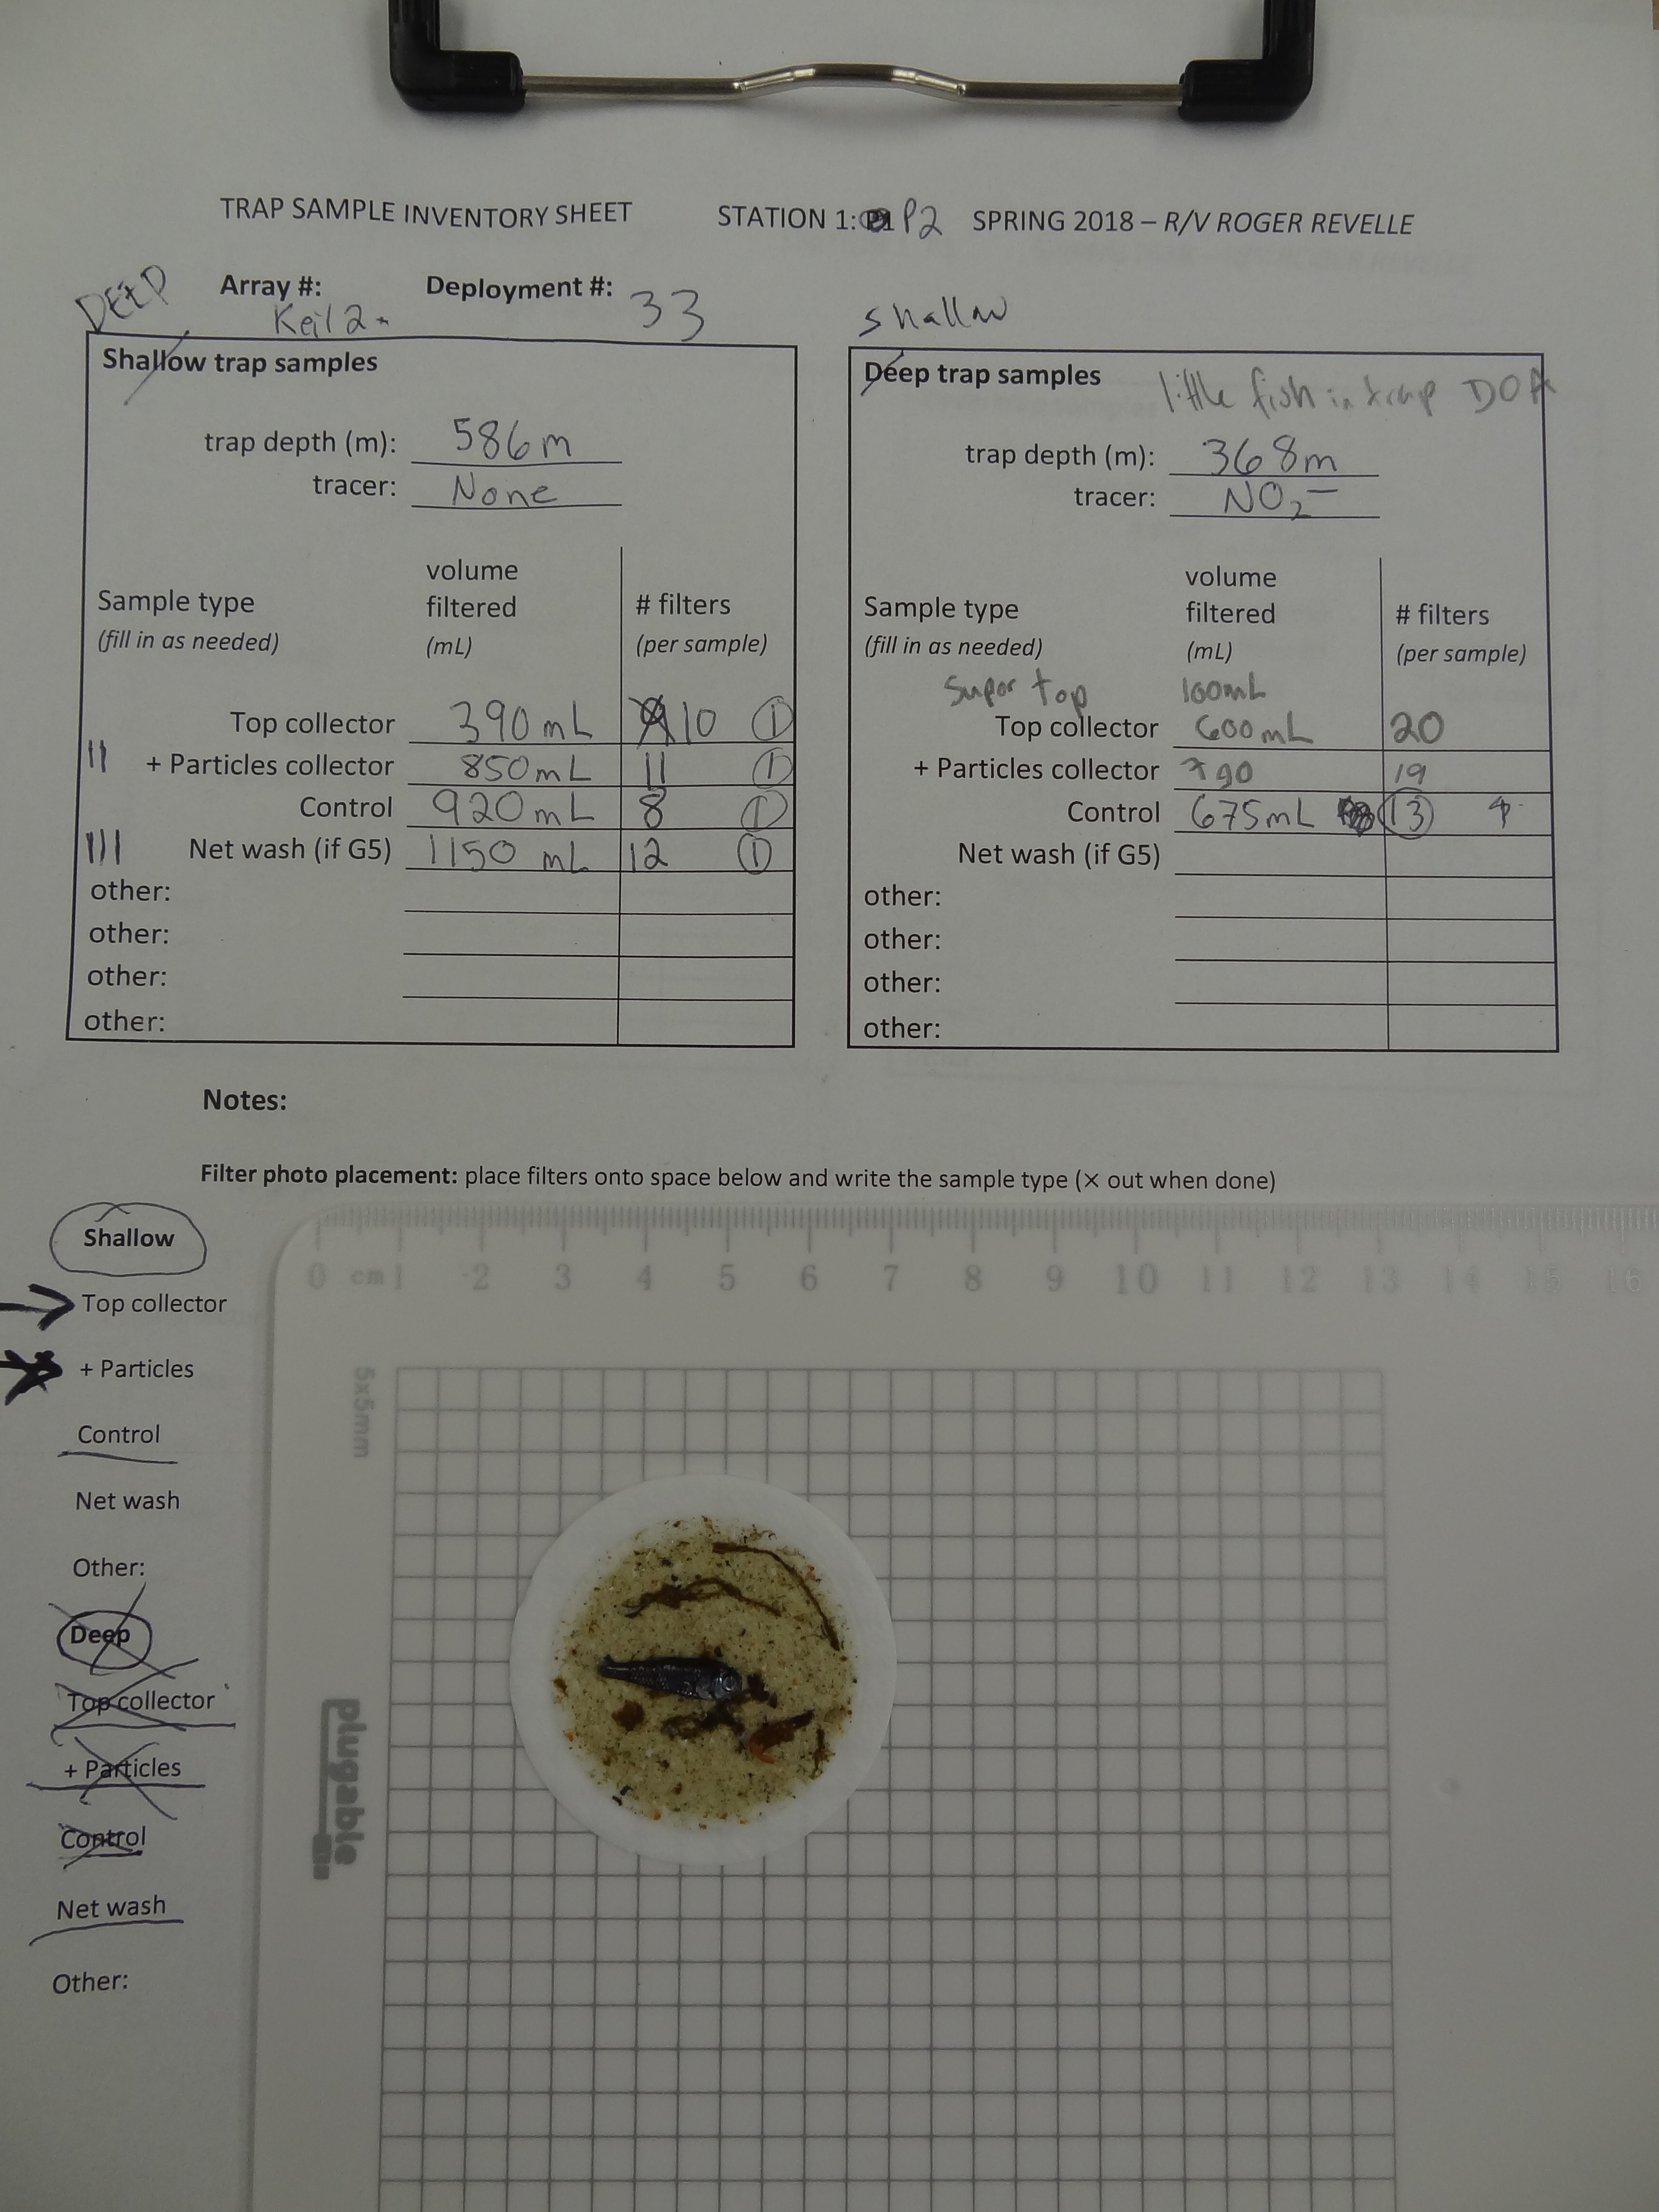 TRAP SAMPLE INVENTORY SHEET STATION 1: P2 SPRING 2018 – R/V ROGER REVELLE
DEEP Array #: Keil 2 Deployment #: 33
shallow
Shallow trap samples
trap depth (m): 586m
tracer: None
Sample type (fill in as needed)
volume filtered (mL)
# filters (per sample)
Top collector 390 mL 10 ①
|| + Particles collector 850mL 11 ①
Control 920mL 8 ①
||| Net wash (if G5) 1150 mL 12 ①
other:
other:
other:
other:
Deep trap samples
little fish in trap DOA
trap depth (m): 368m
tracer: NO2-
Sample type (fill in as needed)
volume filtered (mL)
# filters (per sample)
Super top 100mL
Top collector 600mL 20
+ Particles collector 790 19
Control 675mL 13
Net wash (if G5)
other:
other:
other:
other:
Notes:
Filter photo placement: place filters onto space below and write the sample type (× out when done)
Shallow
Top collector
+ Particles
Control
Net wash
Other:
Deep
Top collector
+ Particles
Control
Net wash
Other:
0 cm 1 2 3 4 5 6 7 8 9 10 11 12 13 14 15 16
5x5mm
plugable